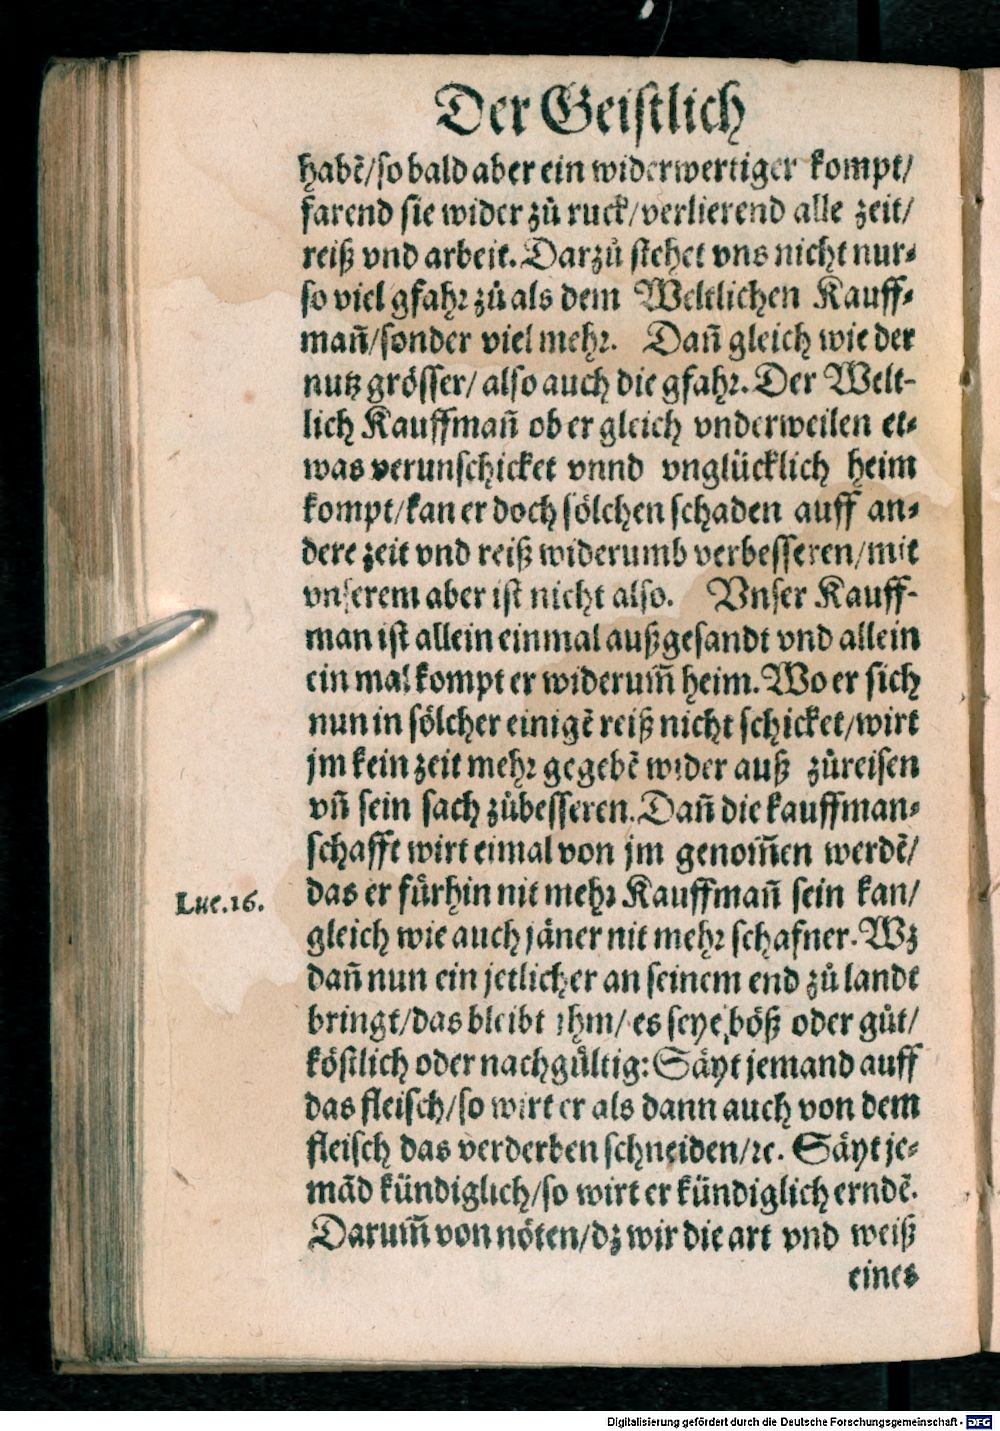 Der Geistlich
habē/so bald aber ein widerwertiger kompt/
farend sie wider zů ruck/verlierend alle zeit/
reiß vnd arbeit. Darzů stehet vns nicht nur-
so viel gfahr zů als dem Weltlichen Kauff-
mañ/sonder viel mehr. Dañ gleich wie der
nutz grösser/ also auch die gfahr. Der Welt-
lich Kauffmañ ob er gleich vnderweilen et-
was verunschicket vnnd vnglücklich heim
kompt/kan er doch sölchen schaden auff an-
dere zeit vnd reiß widerumb verbesseren/mit
vnserem aber ist nicht also. Vnser Kauff-
man ist allein einmal außgesandt vnd allein
ein mal kompt er widerum̄ heim. Wo er sich
nun in sölcher einigē reiß nicht schicket/wirt
jm kein zeit mehr gegebē wider auß zůreisen
vñ sein sach zůbesseren. Dañ die kauffman-
schafft wirt eimal von jm genom̄en werdē/
das er fürhin nit mehr Kauffmañ sein kan/
Luc.16.
gleich wie auch jäner nit mehr schafner. Wz
dañ nun ein jetlicher an seinem end zů landt
bringt/das bleibt jhm/ es seye böß oder gůt/
köstlich oder nachgültig: Säyt jemand auff
das fleisch/so wirt er als dann auch von dem
fleisch das verderben schneiden/ꝛc. Säyt je-
mād kündiglich/so wirt er kündiglich erndē.
Darum̄ von nöten/dz wir die art vnd weiß
eines
Digitalisierung gefördert durch die Deutsche Forschungsgemeinschaft - DFG